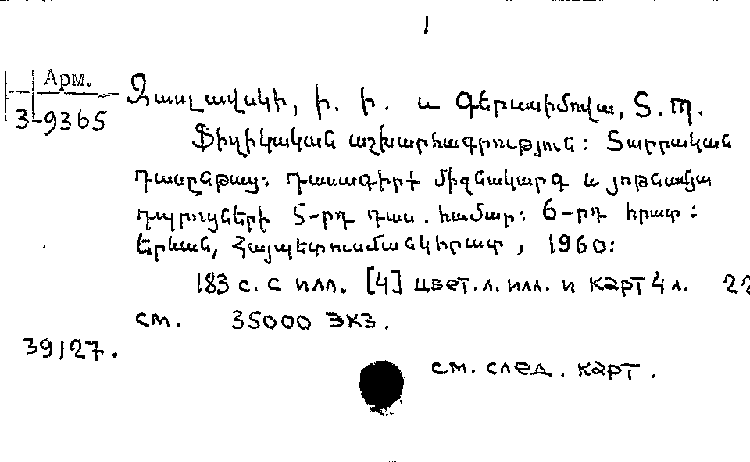 1
Арм.
3-9365
Զասլավսկի, Ի. Ի. և Գերասիմովա, Տ. Պ.
Ֆիզիկական աշխարհագրություն: Տարրական
դասընթաց: Դասագիրք միջնակարգ և յոթնամյա
դպրոցների 5-րդ դաս. համար: 6-րդ հրատ:
Երևան, Հայպետուսմանկհրատ, 1960:
183 с. с илл. [4] цвет. л. илл. и карт 4 л. 22
см. 35000 экз.
39127.
см. след. карт.